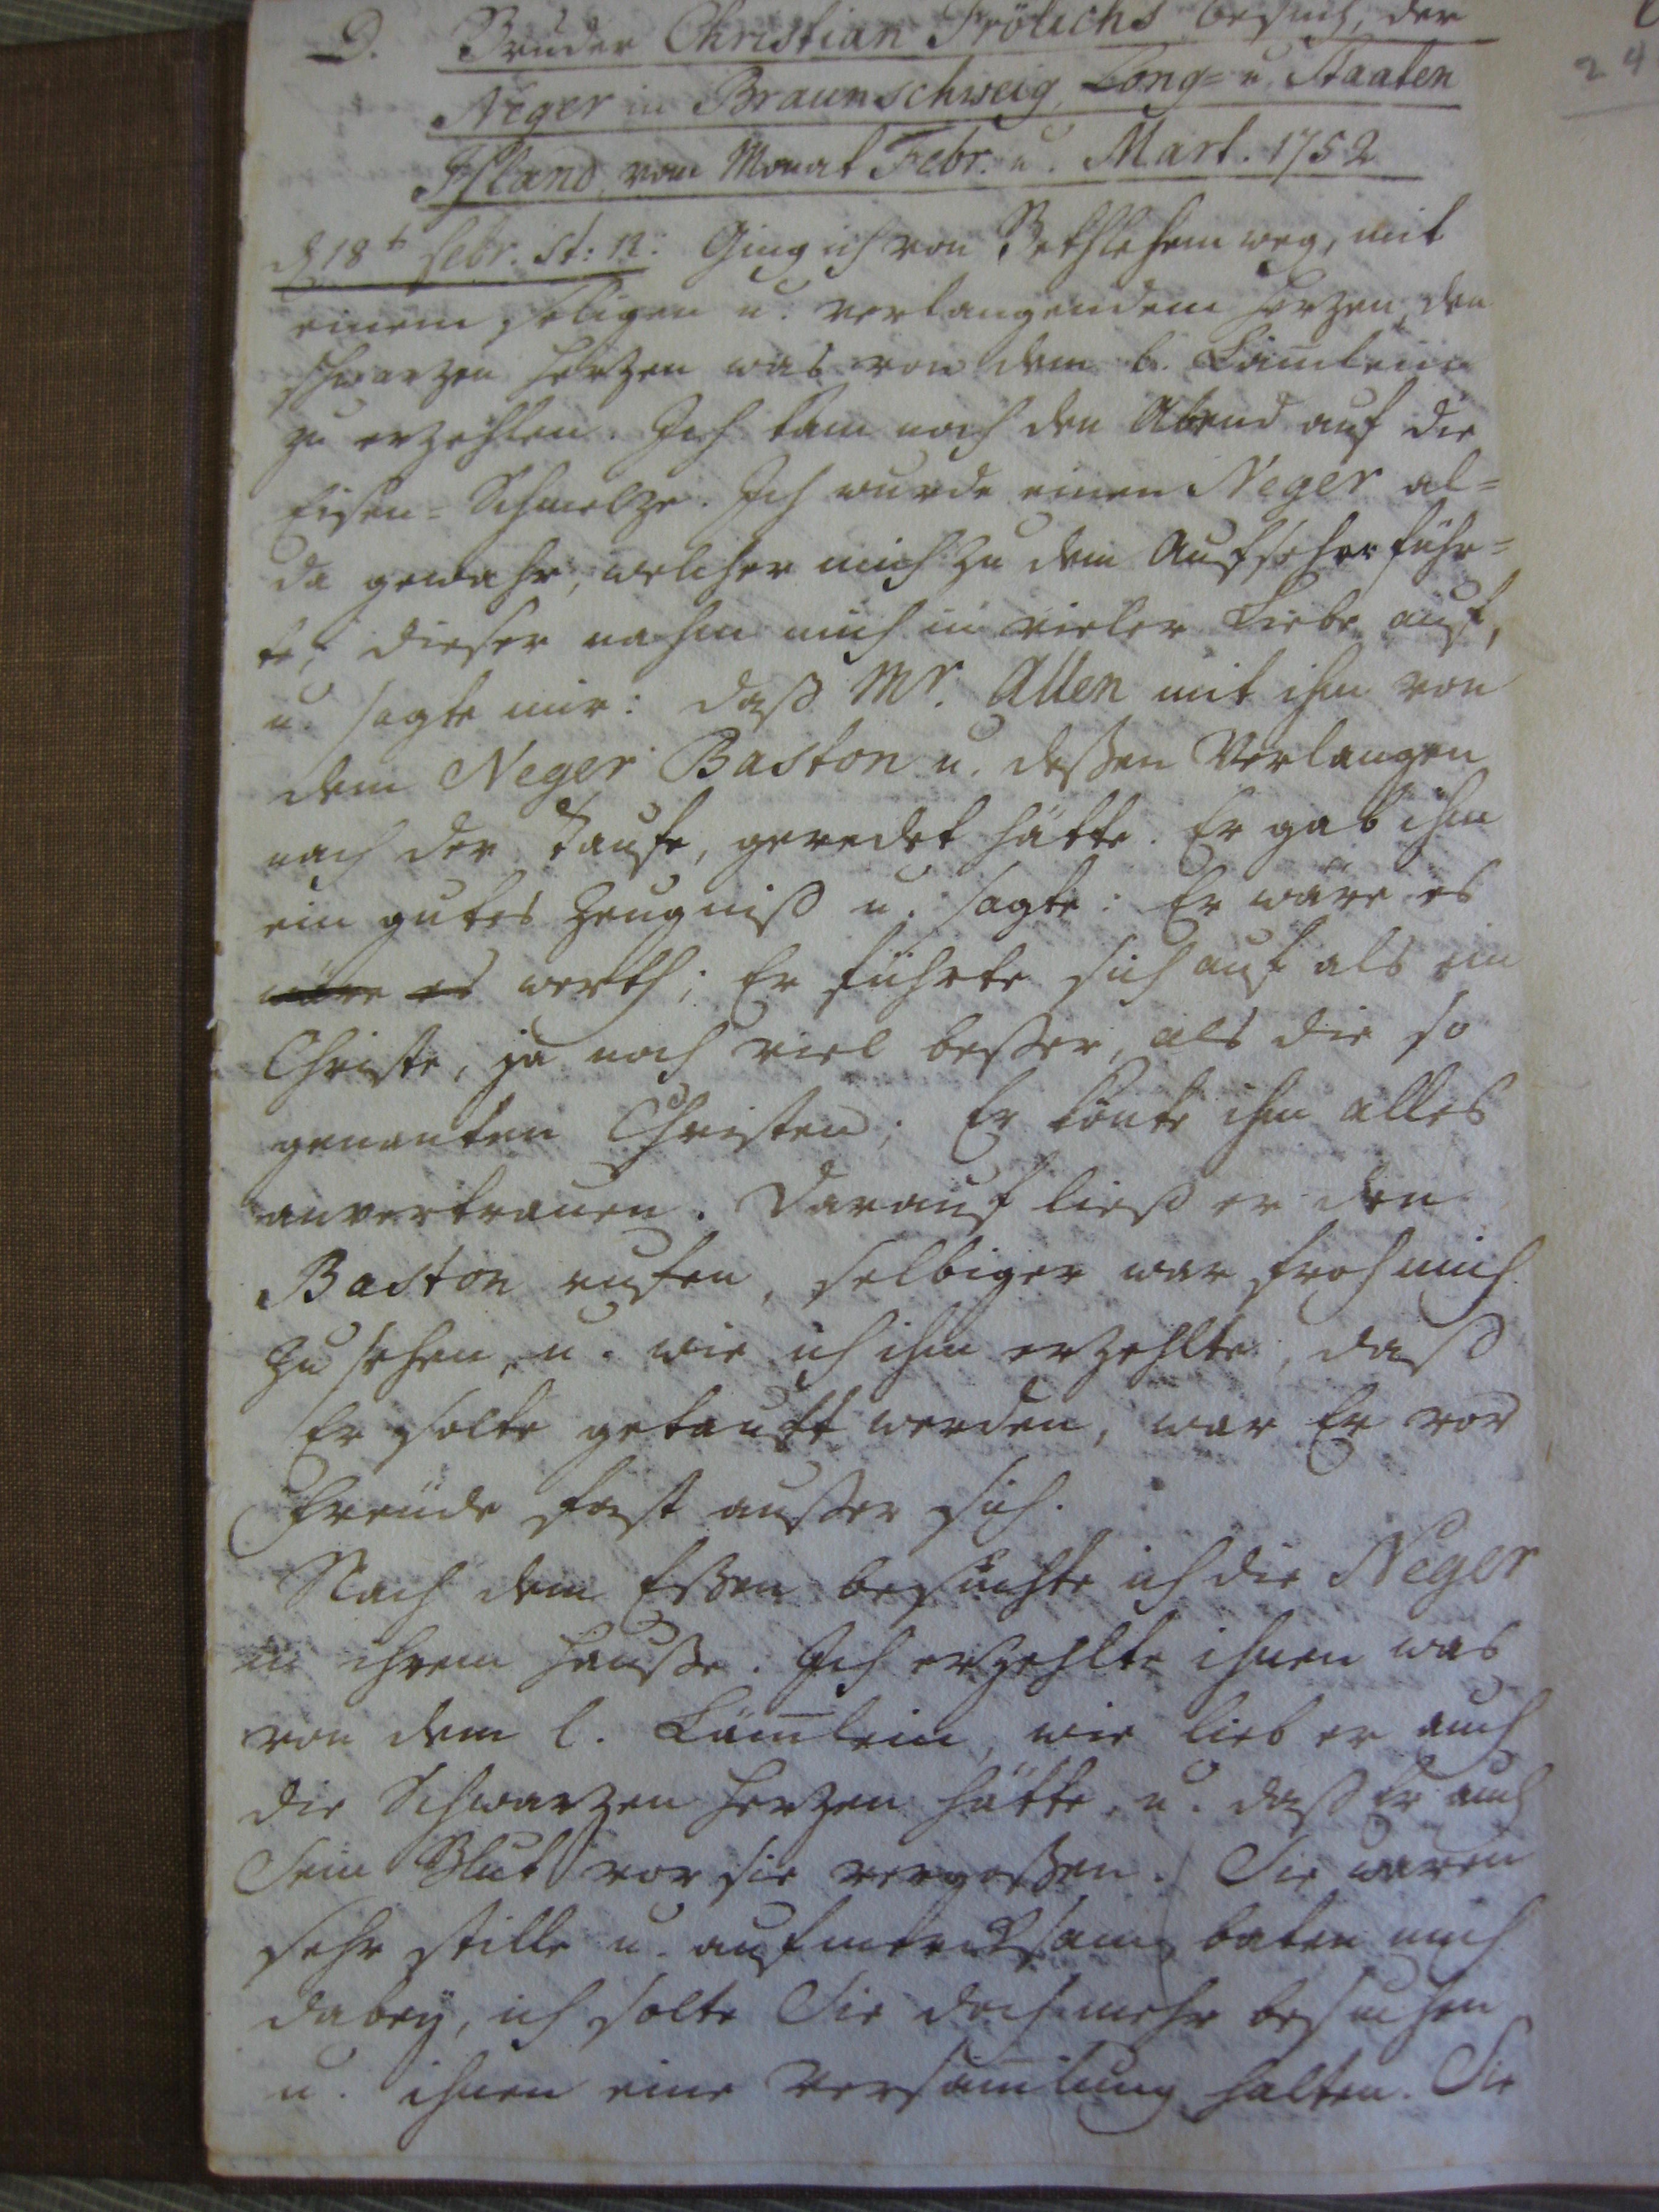 D. Bruder Christian Frölichs Besuch, der
Neger in Braunschweig, Long= u. Staaten
Island, vom Monat Febr. u. Mart. 1752
d 18t Febr. St: n: Ging ich von Bethlehem weg, mit
einem seligen u. verlangendem Herzen, den
schwarzen Herzen was von dem l. Lämlein
zu erzehlen. Ich kam noch den Abend auf die
Eisen=Schmelze. Ich wurde einen Neger al=
da gewahr, welcher mich zu dem Aufseher führ=
te; dieser nahm mich in vieler Liebe auf,
u. sagte mir: daß Mr. Allen mit ihm von
dem Neger Baston u. deßen Verlangen
nach der Taufe, geredet hätte. Er gab ihm
ein gutes Zeugniß u. sagte: Er wäre es
wäre es werth; Er führte sich auf als ein
Christe, ja noch viel beßer, als die so
genanten Christen; Er könte ihm alles
anvertrauen. Darauf ließ er den
Baston rufen, selbiger war froh mich
zu sehen, u. wie ich ihm erzehlte, daß
Er solte getauft werden, war Er vor
Freude fast außer sich.
Nach dem Eßen besuchte ich die Neger
in ihrem Hauße. Ich erzehlte ihnen was
von dem l. Läm̅lein, wie lieb er auch
die Schwarzen Herzen hätte, u. daß Er auch
Sein Blut vor sie vergoßen. Sie waren
sehr stille u. aufmercksam, baten mich
dabey, ich solte Sie doch mehr besuchen
u. ihnen eine Versam̅lung halten. Sie
24